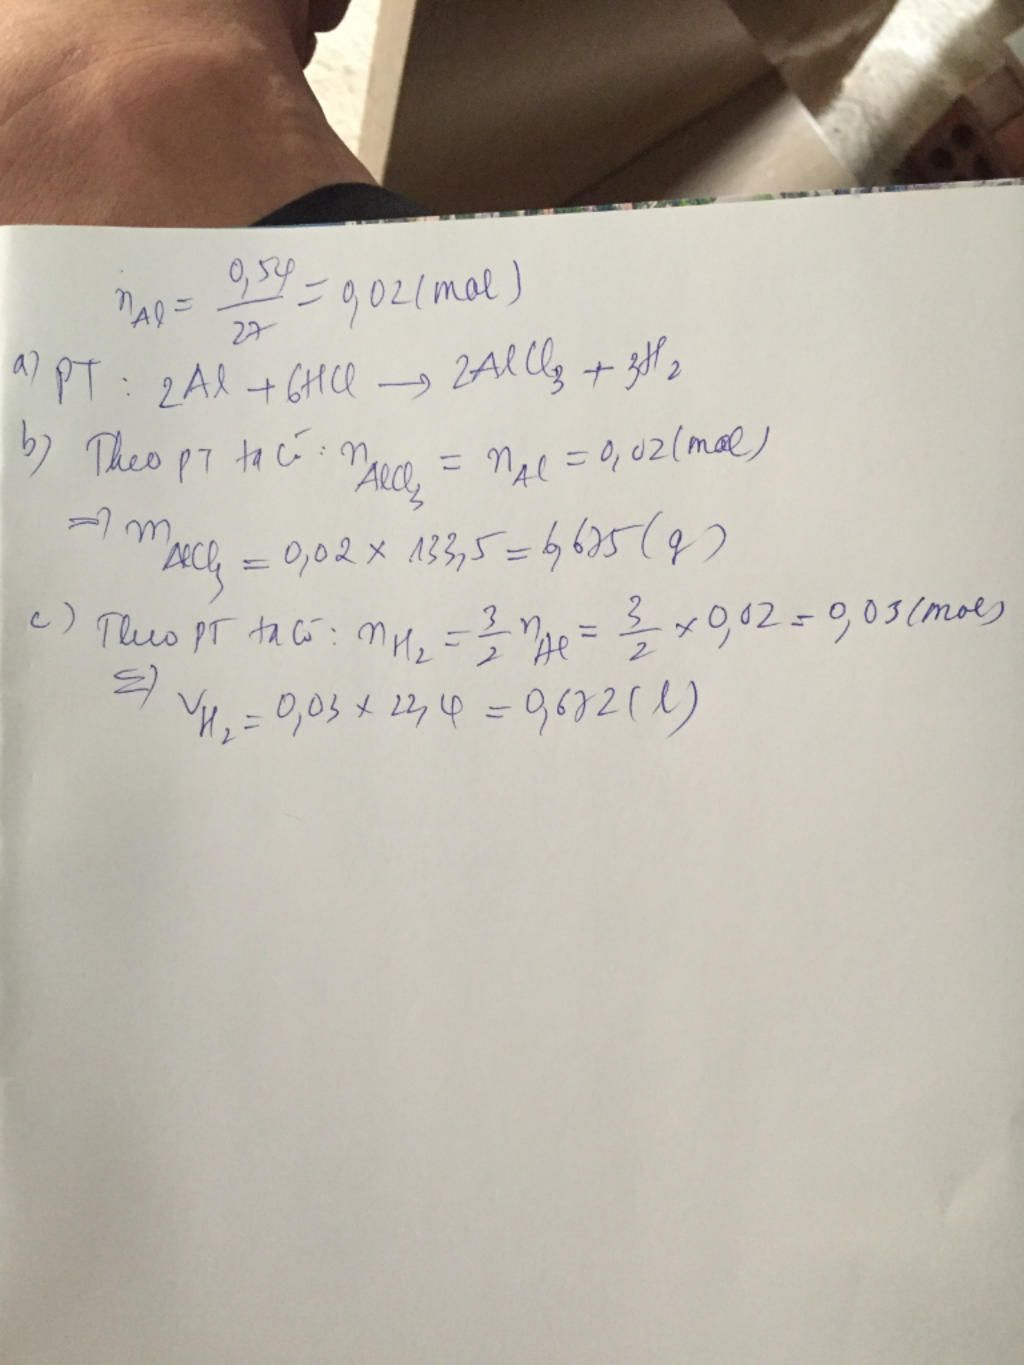 nAl = 0,54/27 = 0,02 (mol)
a) PT : 2Al + 6HCl → 2AlCl3 + 3H2
b) Theo PT ta có : nAlCl3 = nAl = 0,02 (mol)
=> mAlCl3 = 0,02 × 133,5 = 6,675 (g)
c) Theo PT ta có : nH2 = 3/2 nAl = 3/2 × 0,02 = 0,03 (mol)
=> VH2 = 0,03 × 22,4 = 0,672 (l)